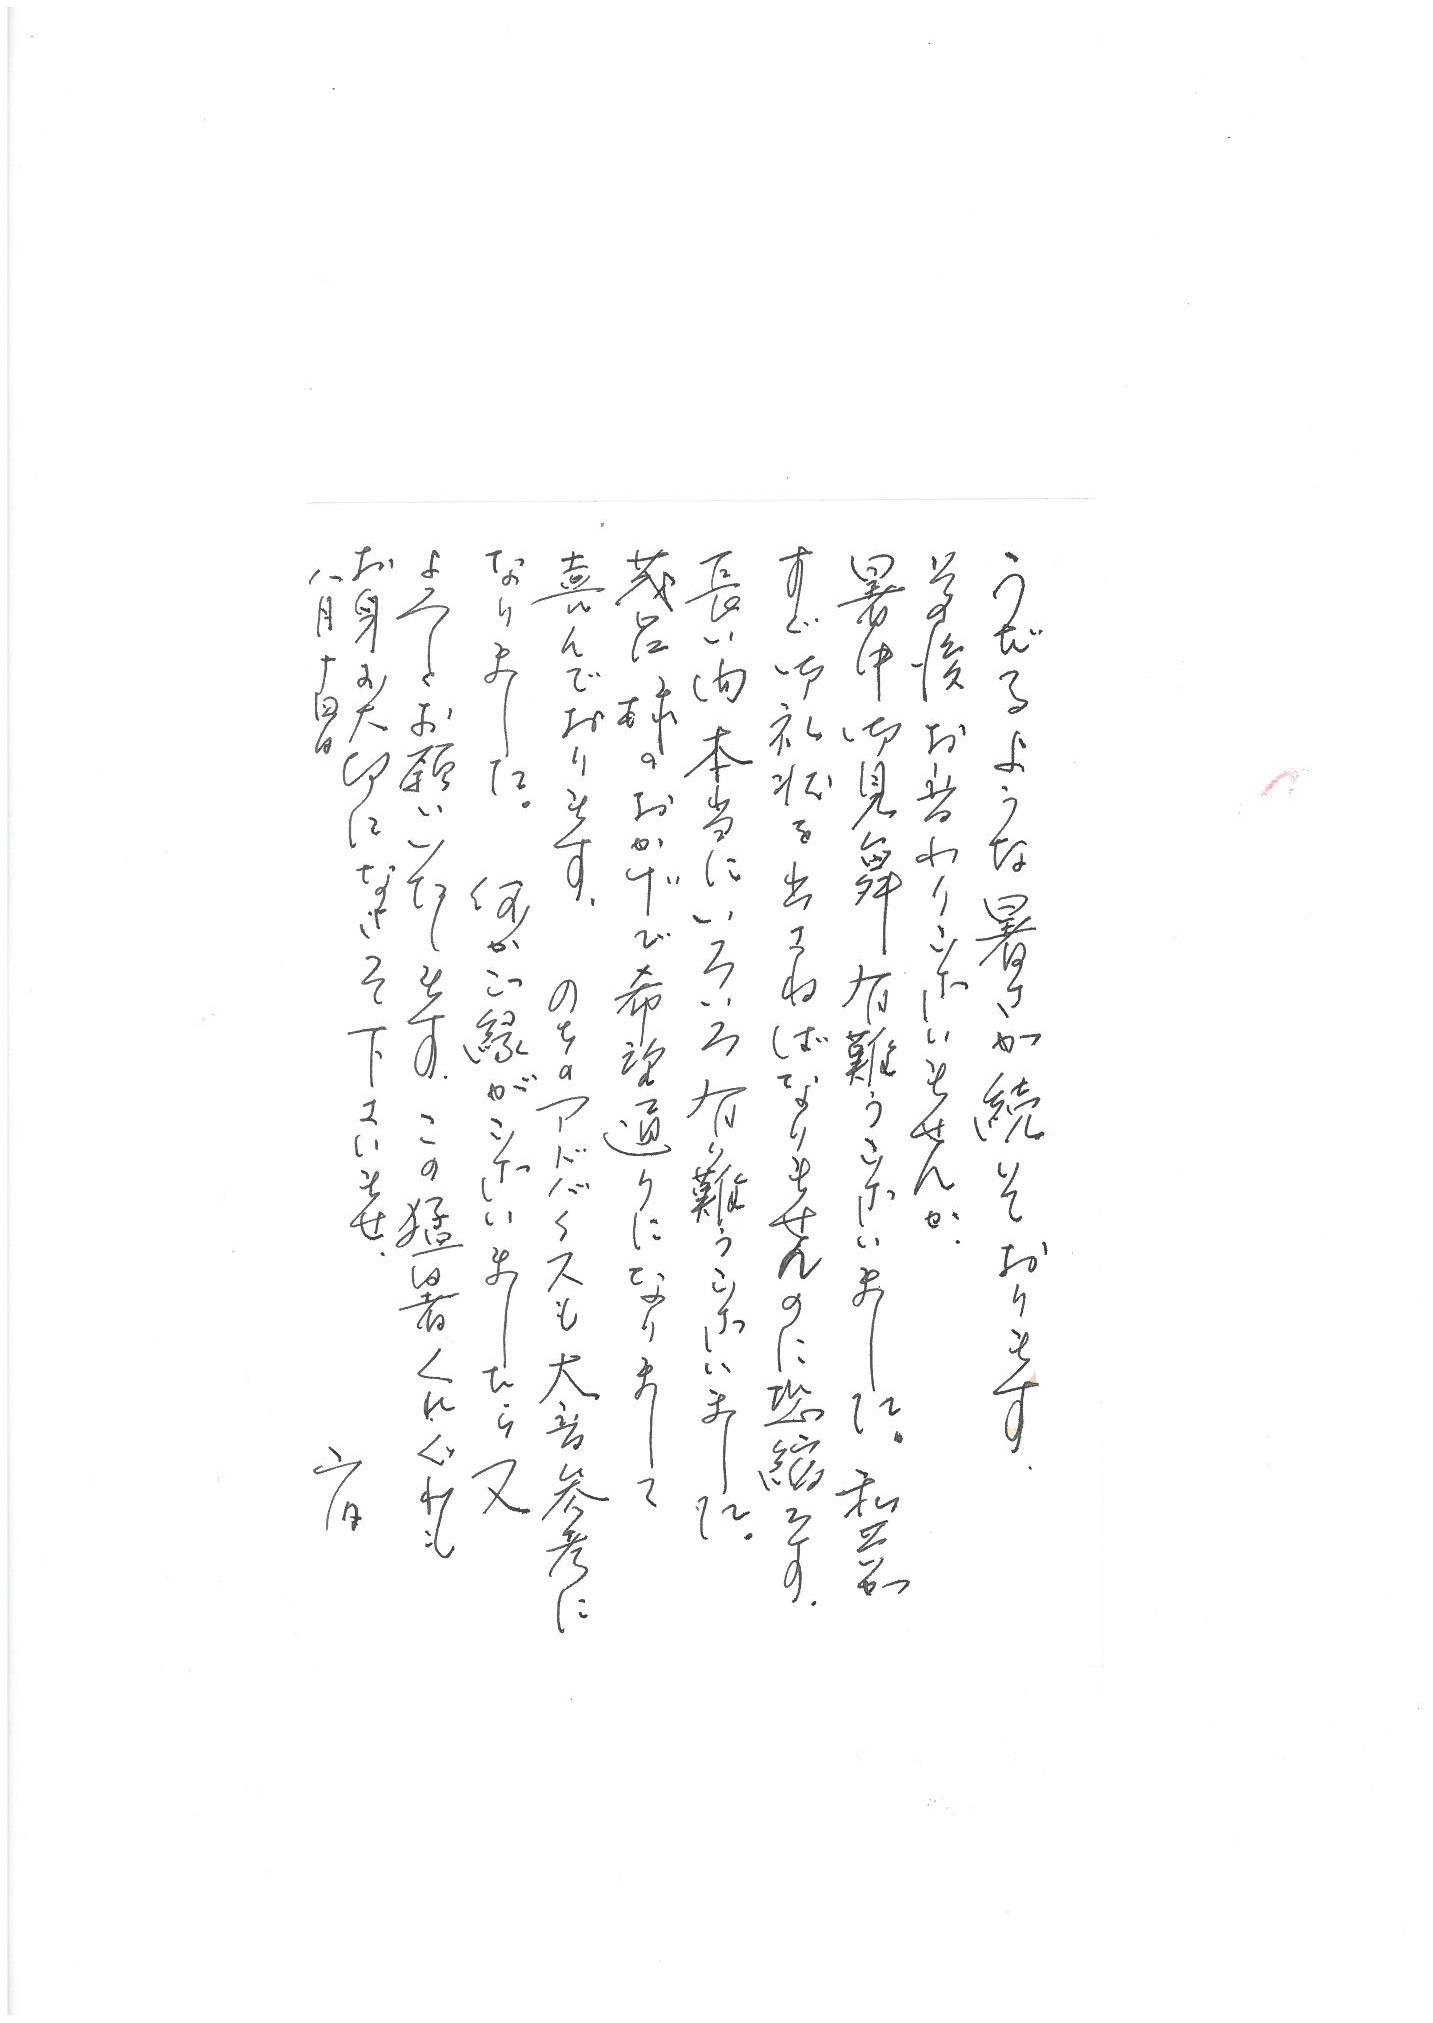 うだるような暑さが続いております.
其の後お変わりございませんか.
暑中御見舞有難うございました。私共が
すぐ御礼状を出さねばなりませんのに恐縮です.
長い間本当にいろいろ有り難うございました。
茂呂様のおかげで希望通りになりまして
喜んでおります. のちのアドバイスも大音参考に
なりました。 何かご縁がございましたら又
よろしくお願いいたします. この猛暑くれぐれも
お身お大切になさって下さいませ.
八月十四日